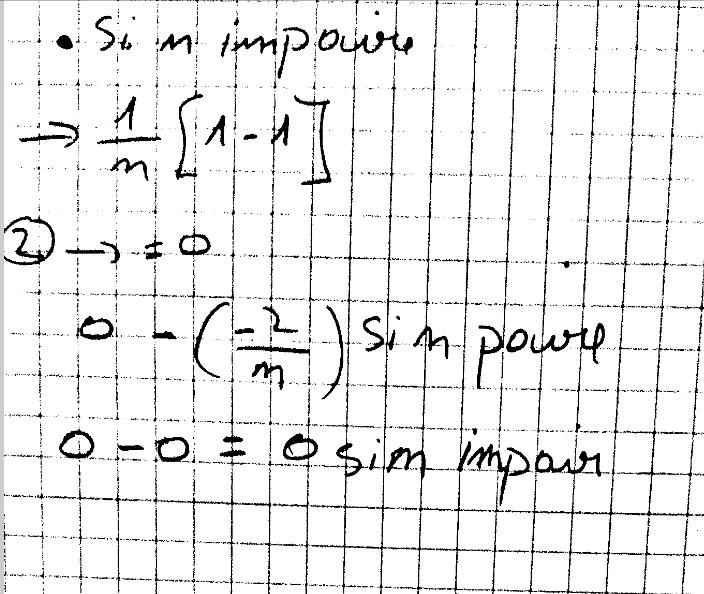 • Si n impaire
→ 1/n [1 - 1]
② → = 0
0 - (-2/n) Si n paire
0 - 0 = 0 si n impair